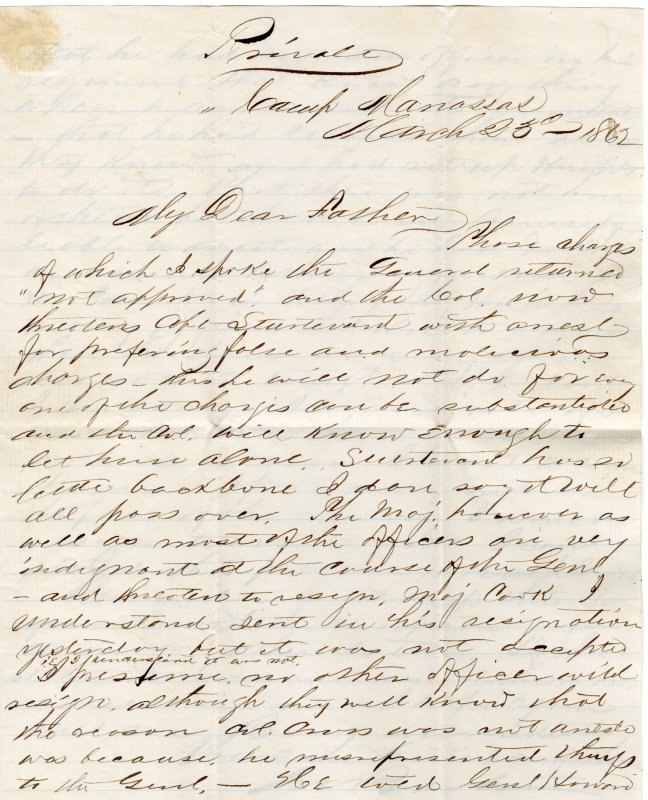 Private
" Camp Manassas
March 23d 1862
My Dear Father
Those charges
of which I spoke the General returned
"not approved". and the Col. now
threatens Capt Sturtevant with arrest
for prefering false and malicious
charges - this he will not do. for every
one of the charges can be substantiated
and the Col. will know enough to
let him alone. Sturtevant has so
little backbone I dare say it will
all pass over. The Maj. however as
well as most of the officers are very
indignant at the course of the Genl
- and threaten to resign. Maj Cook I
understand sent in his resignation
yesterday but it was not accepted
i.e. I understand it was not.
I presume no other officer will
resign. although they well know that
the reason Col. Cross was not arrested
was because he misrepresented things
to the Genl. - He told Genl Howard